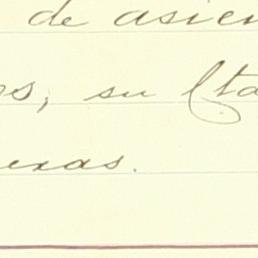 de asien
os, su Ita
exas.